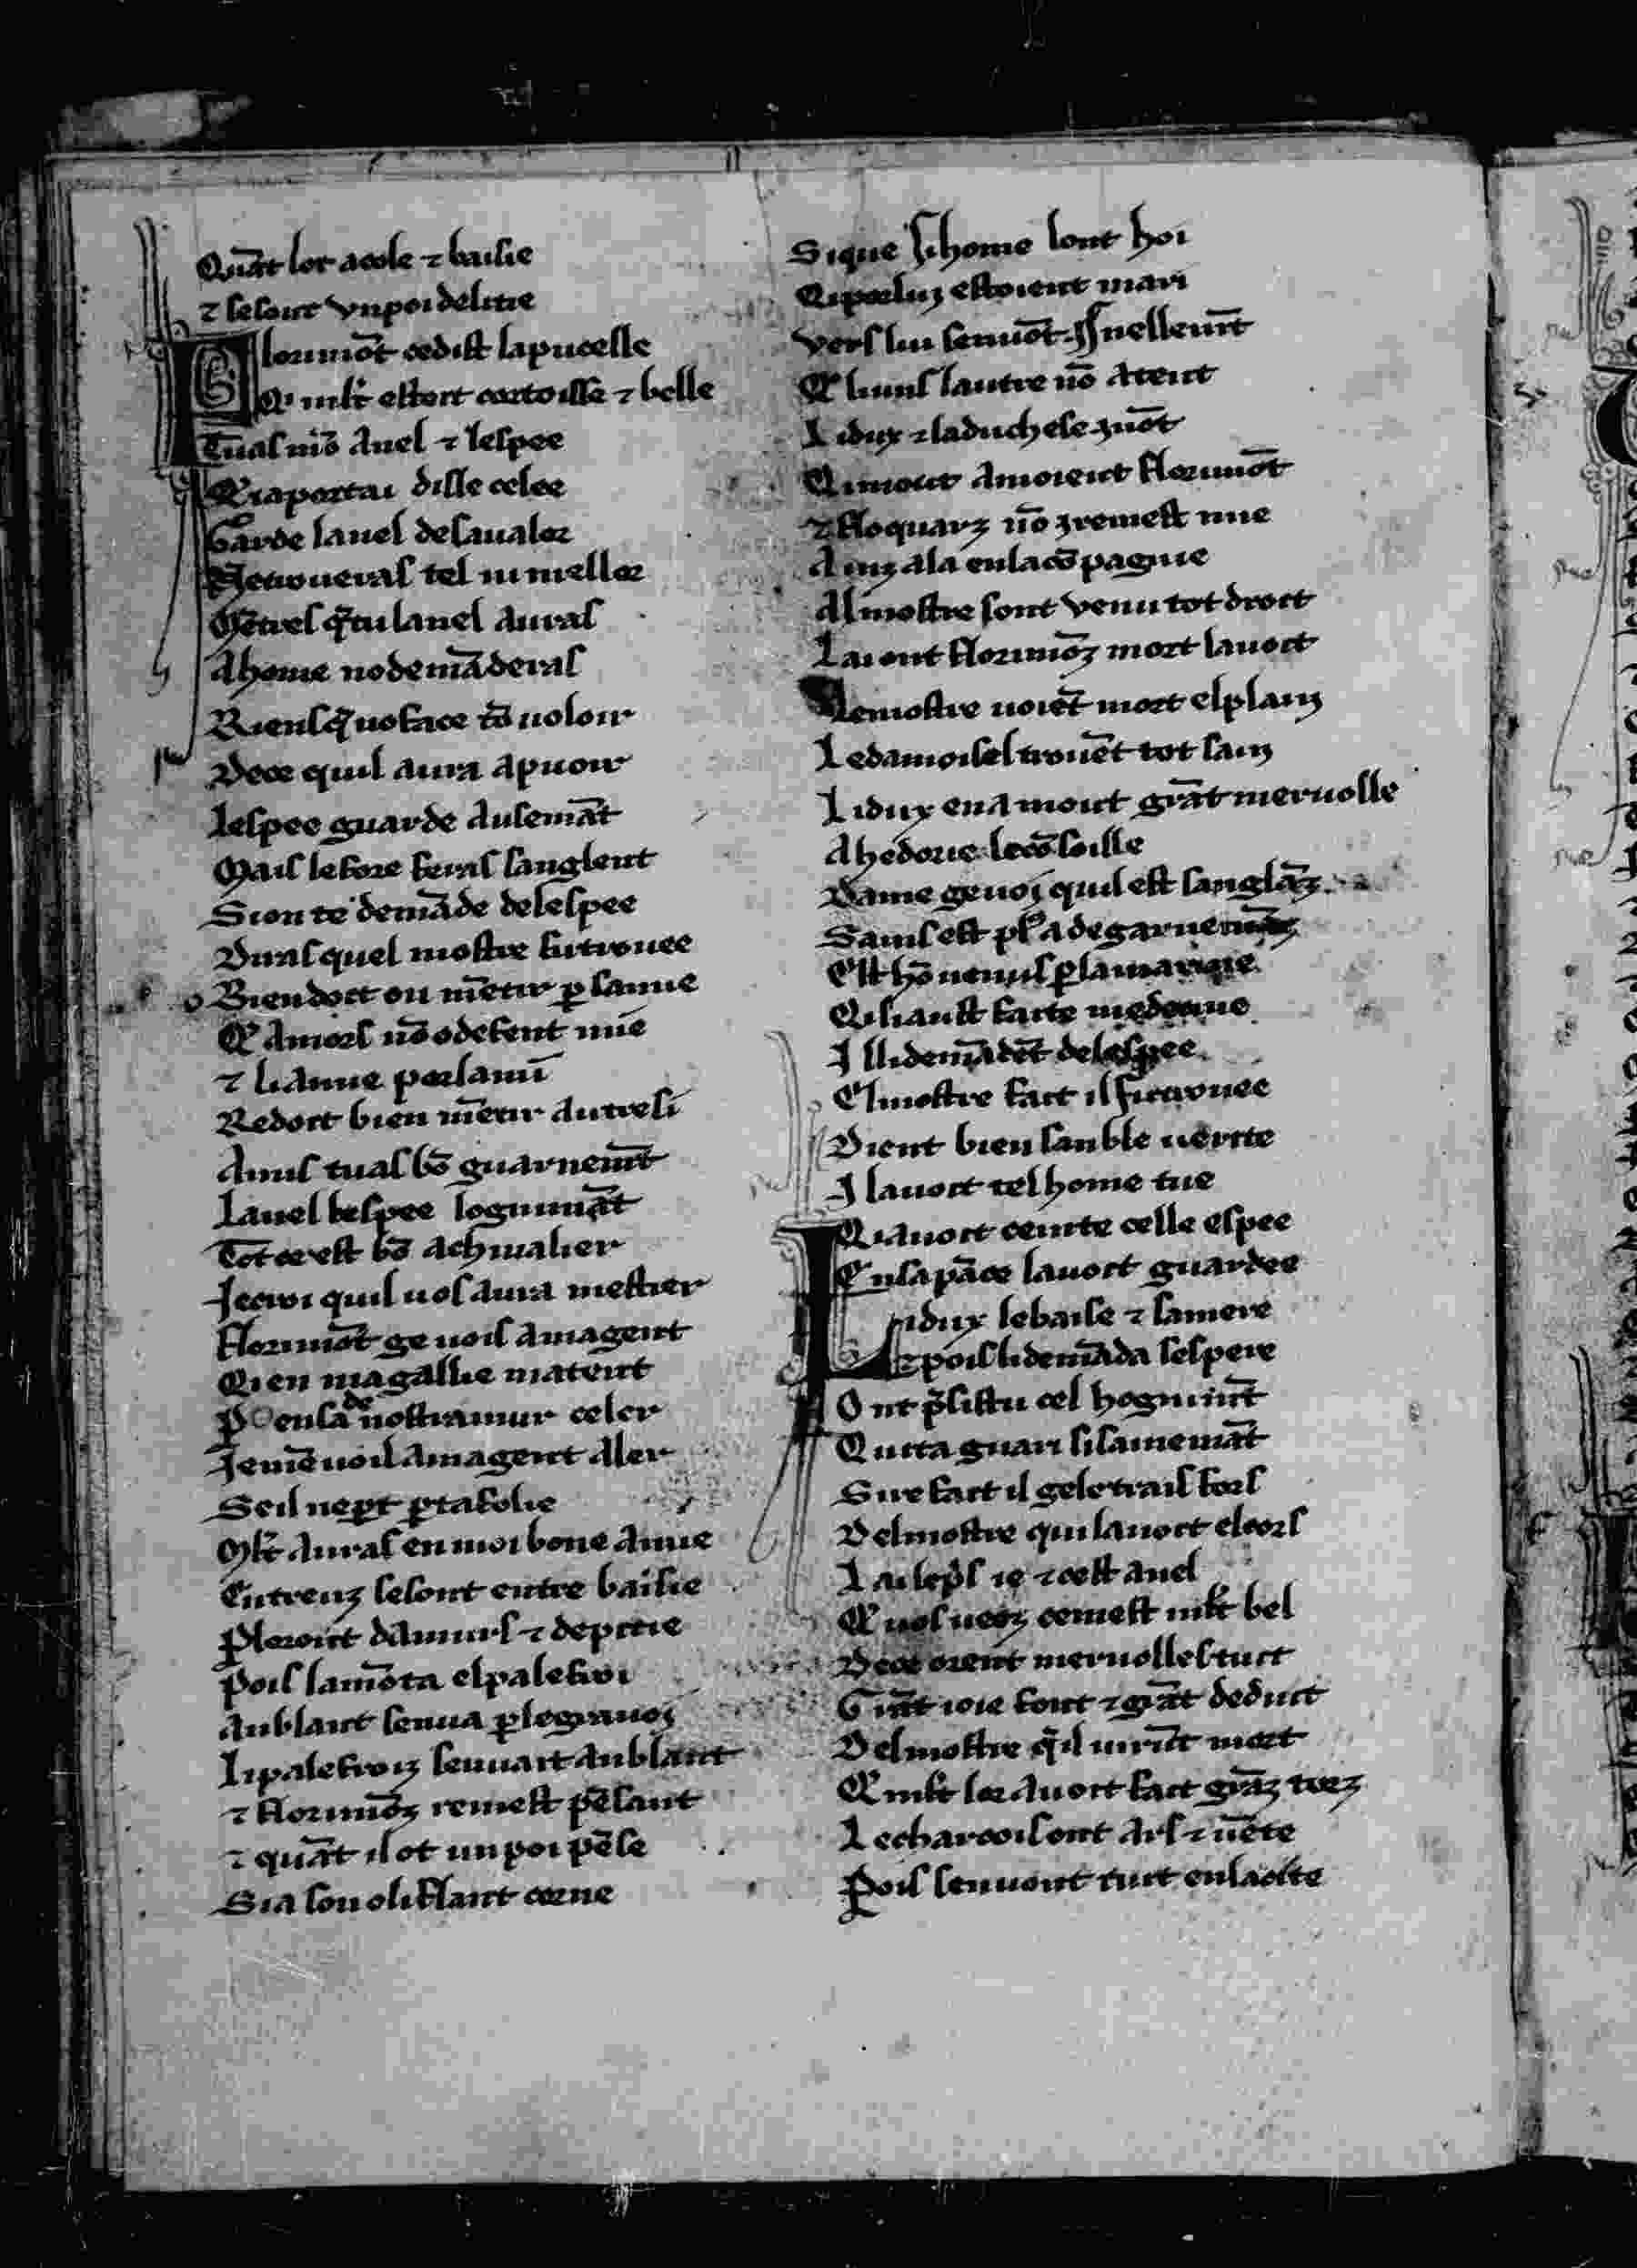 Quāt lor acole ⁊ baisie
⁊ sesont vnpoi delitie
Florimōt cedist lapucelle
Q̇ mlt̄ estort cortoisse ⁊ belle
Tuas mō anel ⁊ lespee
Qiaportai disle celee
Garde lanel desaualor
Netroueras tel ni mellor
Qētres q̄tu lanel auras
Ahome nodemāderas
Riensq̄ noface tō uoloir
Dece quil aura apuoir
lespee guarde ausemāt
Mais lefore feras sanglent
Sion te demāde delespee
Diras quel mostre futrouee
Biendoit on mētir p̱ samie
Q̇ amors nō odefent mie
⁊ li amie porlamī
Redoit bien mētir autresi
Amis tuas bō guarnemt̄
Lanel lespee loguimāt
Tot ce est bō achiualier
Jecroi quil uos aura mestier
Florimōt ge uoil amagent
Qien magallie matent
P ensa de nostramur celer
Jemē uoil amagent aler
Seil nep̱t p̱tafolie
Mlt̄ auras en moi bone amie
Entrenz sesont entre baisie
Ploroit damurs ⁊ depitie
Pois lamōta elpalefroi
Anblant senua p̱legrauoi
Lipalefroiz senuait anblant
⁊ florimōz remest pēsant
⁊ quāt il ot un poi pēse
Sia son olifant corne
Sique si home lont hoi
Qiporluz estoient mari
Vers lui senuōt isnellemt̄
Q̇ luns lautre nō atent
Lidux ⁊ laduchese zuōt
Qimout amoient florimōt
⁊ floquarz nō zremest mie
Ainz ala enlacōpagnie
Almostre sont venu tot droit
Lai ont florimōz mort lauoit
Lemostre uoiēt mort elplain
Ledamoisel trouēt tot sain
Lidux ena mout grāt meruoille
Ahedorie: lecōsoille
Dame geuoi quil est sanglāz
Sains est
Est hō uenus p̱lamarine
Qiliaust faite medecine
Illidemādēt delespee
Elmostre fait il futrouee
Dient bien sanble uerite
Il auoit tel home tue
Qiauoit ceinte celle espee
Ensapāce lauoit guardee
Lidux lebaise ⁊ samere
⁊ pois lidemāda sespere
Ont p̄sistu cel hoguimt̄
Quita guari sisainemāt
Sire fait il geletrais fors
Delmostre qui lauoit elcors
Lailep̄s ie ⁊ cest anel
Q̇ uos ueez cemest mlt̄ bel
Dece orent meruolles tuit
Grāt ioie font ⁊ grāt deduit
Delmostre q̄il uirāt mort
Q̇ mlt̄ lor auoit fait grāz torz
Lecharoisont ars ⁊ uēte
Pois senuont tuit enlacite